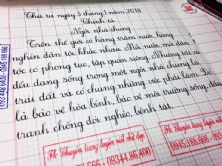 Thứ tư ngày 3 tháng 1 năm 2018
Chính tả
Ngôi nhà chung
Trên thế giới có hàng trăm nước, hàng
nghìn dân tộc khác nhau. Mỗi nước, mỗi dân
tộc có phong tục, tập quán riêng. Nhưng tất cả
đều đang sống trong một ngôi nhà chung là
trái đất và có chung những việc phải làm. Đó
là bảo vệ hòa bình, bảo vệ môi trường, đấu
tranh chống đói nghèo, bệnh tật.
luyện viết chữ đẹp
0934.86.400